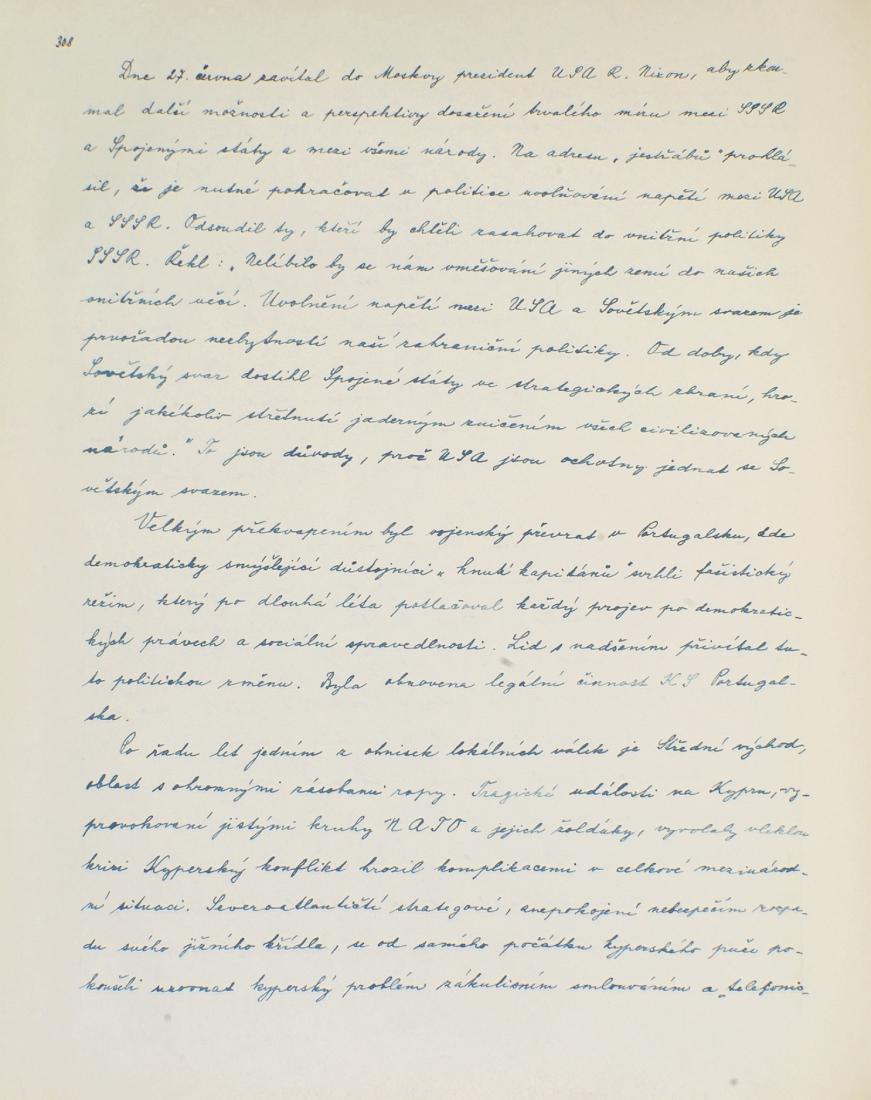 308
Dne 27. června zavítal do Moskvy president USA R. Nixon, aby zkou-
mal další možnosti a perspektivy dosažení trvalého míru mezi SSSR
a Spojenými státy a mezi všemi národy. Na adresu „jestřábů" prohlá-
sil, že je nutné pokračovat v politice uvolňování napětí mezi USA
a SSSR. Odsoudil ty, kteří by chtěli zasahovat do vnitřní politiky
SSSR. Řekl: „Nelíbilo by se nám vměšování jiných zemí do našich
vnitřních věcí. Uvolnění napětí mezi USA a Sovětským svazem je
prvořadou nezbytností naší zahraniční politiky. Od doby, kdy
Sovětský svaz dostihl Spojené státy ve strategických zbraní, hro-
zí jakékoliv střetnutí jaderným zničením všech civilizovaných
národů." To jsou důvody, proč USA jsou ochotny jednat se So-
větským svazem.
Velkým překvapením byl vojenský převrat v Portugalsku, kde
demokraticky smýšlející důstojníci „hnutí kapitánů" svrhli fašistický
režim, který po dlouhá léta potlačoval každý projev po demokratic-
kých právech a sociální spravedlnosti. Lid s nadšením přivítal tu-
to politickou změnu. Byla obnovena legální činnost KS Portugal-
ska.
Po řadu let jedním z ohnisek lokálních válek je Střední východ,
oblast s ohromnými zásobami ropy. Tragické události na Kypru, vy-
provokované jistými kruhy NATO a jejich žoldáky, vyvolaly vleklou
krizi Kyperský konflikt hrozil komplikacemi v celkové mezinárod-
ní situaci. Severoatlantičtí strategové, znepokojení nebezpečím rozpa-
du svého jižního křídla, se od samého počátku kyperského puče po-
koušeli urovnat kyperský problém zákulisním smlouváním a „telefonic-